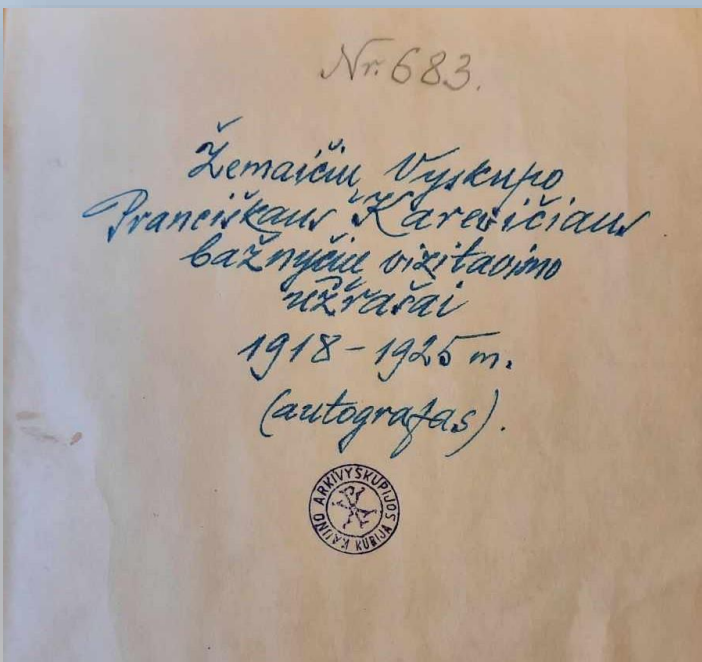 Nr. 683.
Žemaičių Vyskupo
Pranciškaus Karevičiaus
bažnyčių vizitavimo
užrašai
1918-1925 m.
(autografas).
KAUNO ARKIVYSKUPIJOS KURIJA